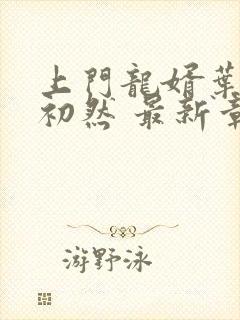 上門龍婿葉
初然 最新章
游野泳